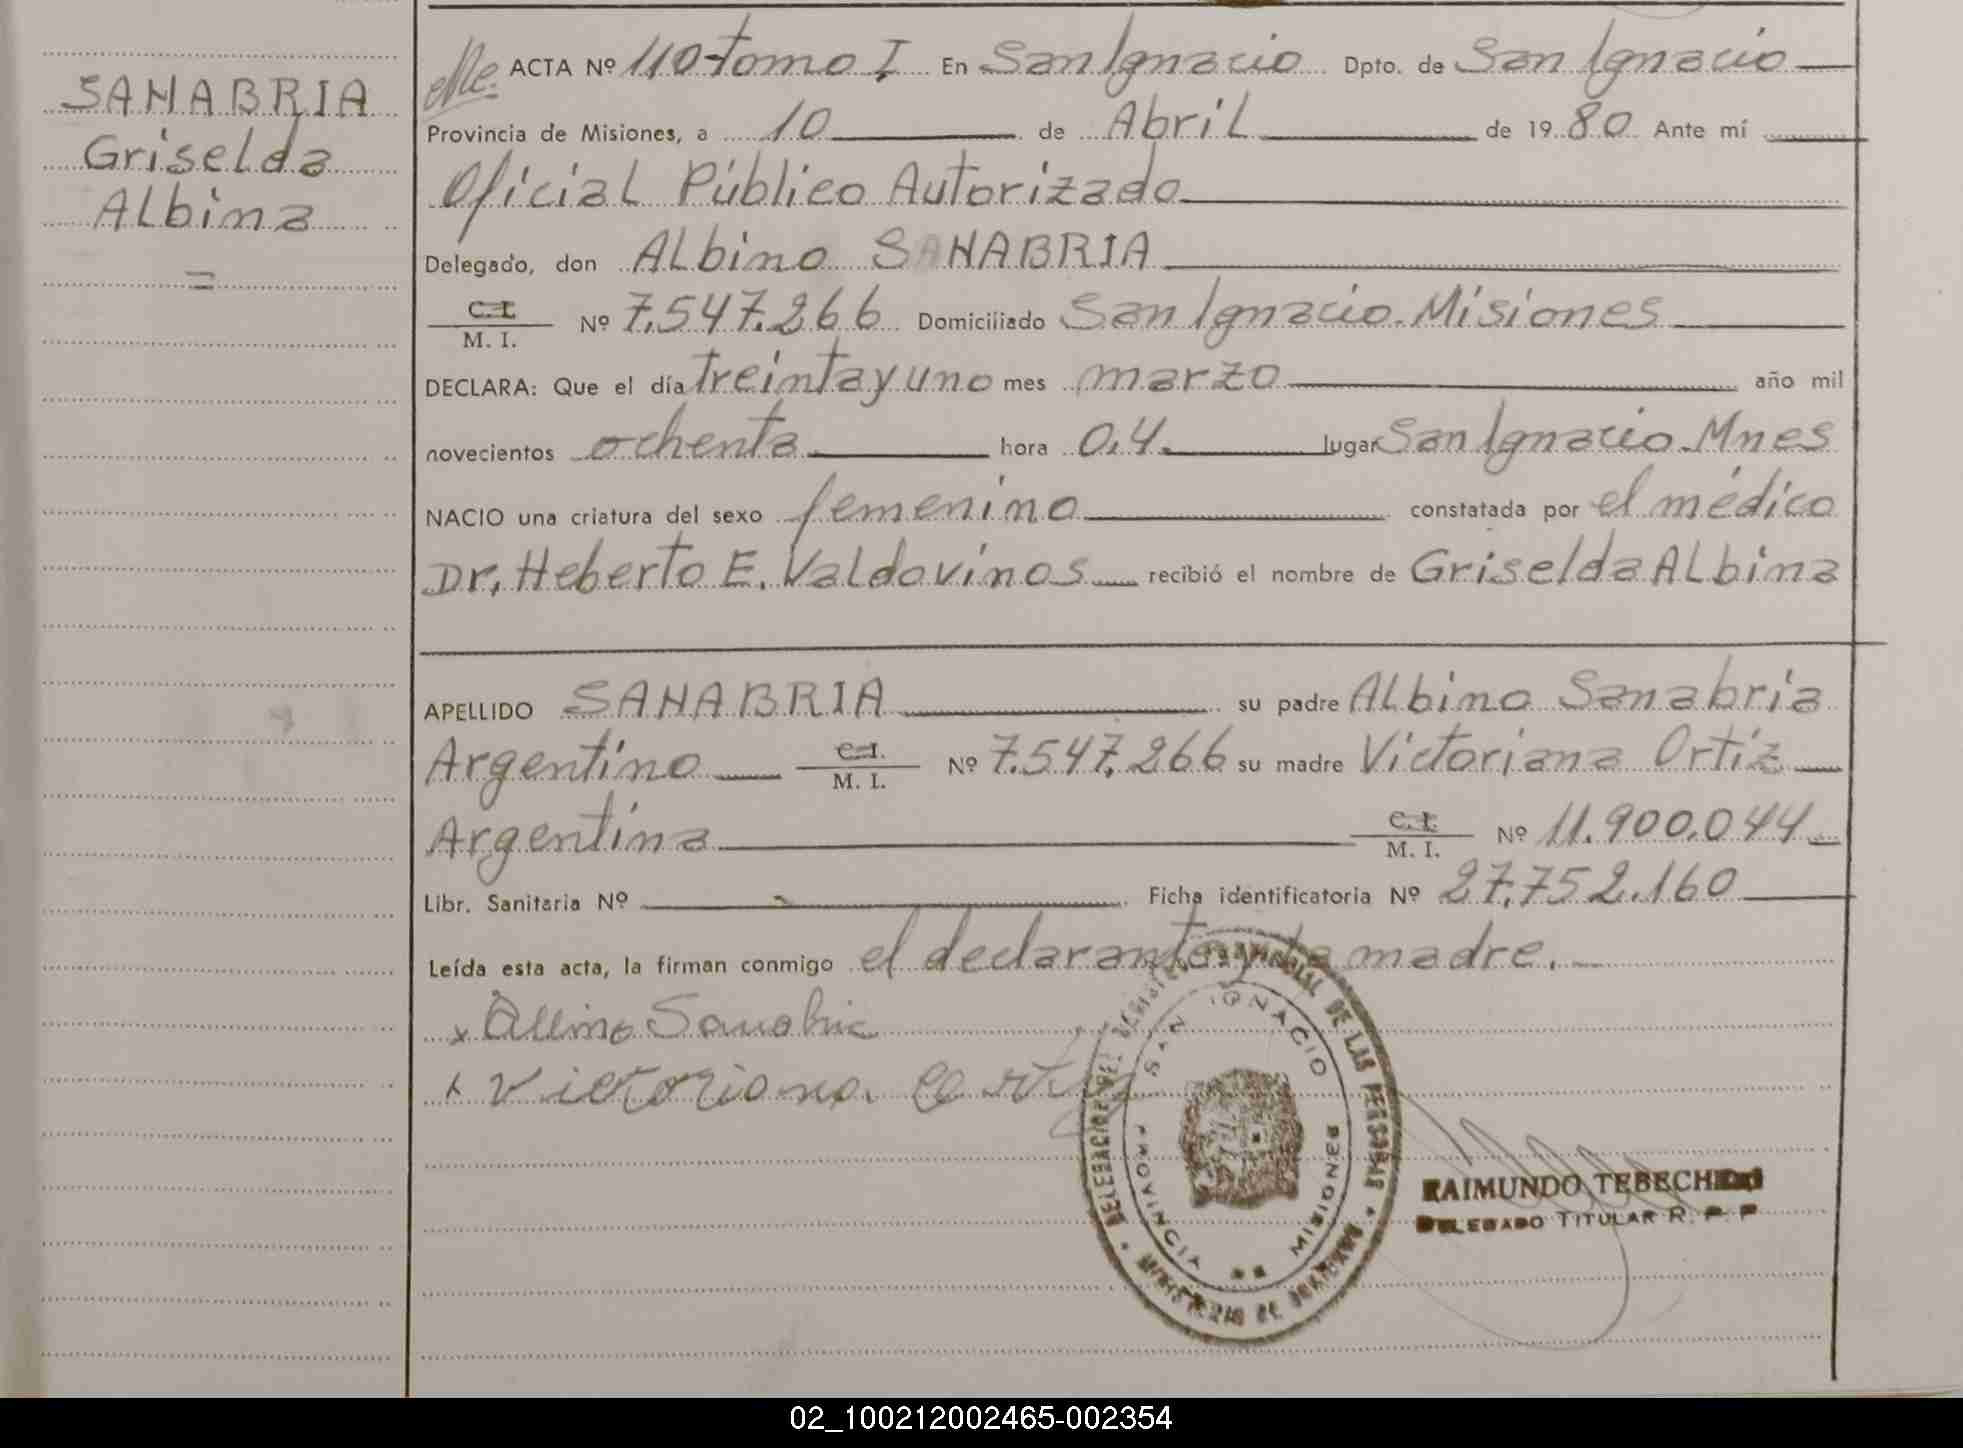 SANABRIA
Griselda
Albina
=
ACTA Nº 110-tomo I En San Ignacio Dpto. de San Ignacio
Provincia de Misiones, a 10 de Abril de 1980 Ante mí
Oficial Público Autorizado
Delegado, don Albino SANABRIA
C.I.
M. I. Nº 7.547.266 Domiciliado San Ignacio. Misiones
DECLARA: Que el día treinta y uno mes marzo año mil
novecientos ochenta hora 0,4. lugar San Ignacio. Mnes
NACIO una criatura del sexo femenino constatada por el médico
Dr. Heberto E. Valdovinos recibió el nombre de Griselda Albina
APELLIDO SANABRIA su padre Albino Sanabria
Argentino C.I.
M. I. Nº 7.547.266 su madre Victoriana Ortiz
Argentina C.I.
M. I. Nº 11.900.044
Libr. Sanitaria Nº Ficha identificatoria Nº 27.752.160
Leída esta acta, la firman conmigo el declarante y la madre.
x Albino Sanabria
x Victoriana
DELEGACION DEL REGISTRO PROVINCIAL DE LAS PERSONAS
MINISTERIO DE GOBIERNO
SAN IGNACIO
PROVINCIA MISIONES
RAIMUNDO TEBECH
DELEGADO TITULAR R. P. P
02_100212002465-002354